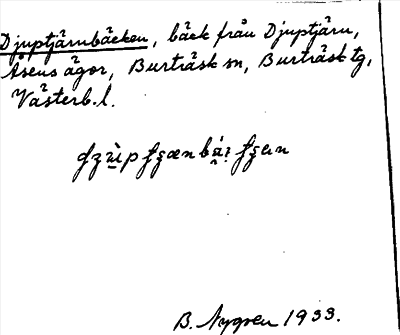 Djuptjärnbäcken, bäck från Djuptjärn,
Åsens ägor, Burträsk sn, Burträsk tg,
Västerb. l.
B. Nygren 1933.